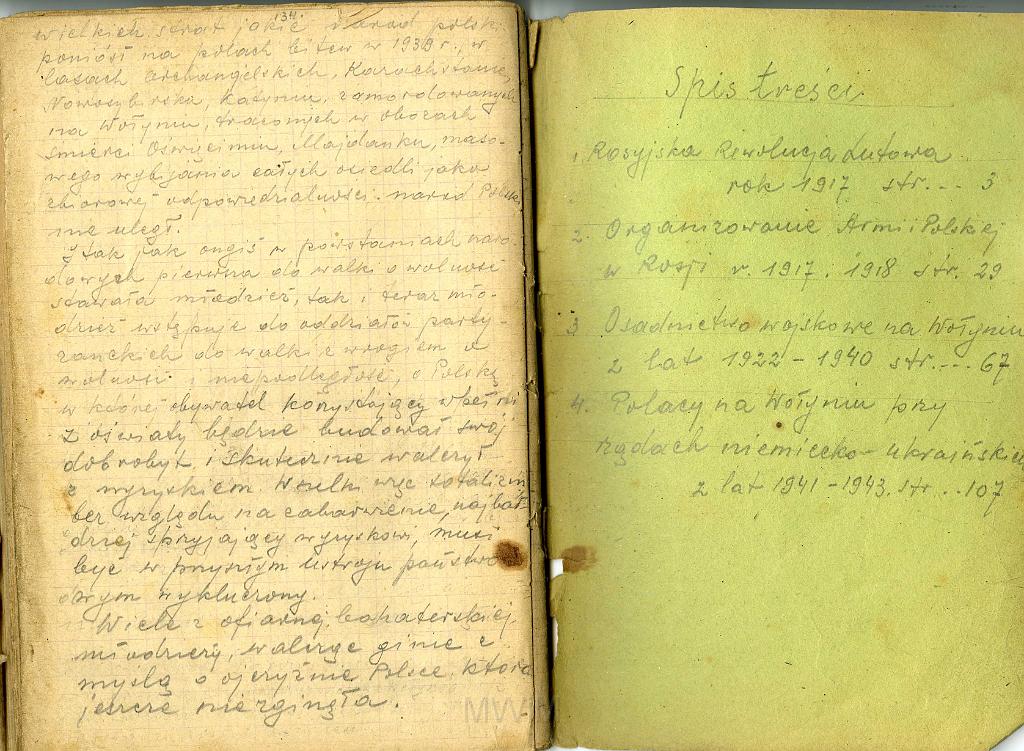 134.
wielkich strat jakie naród polski
poniósł na polach bitew w 1939 r., w
lasach Archangielskich, Karachstanie,
Nowosybirska, Katyniu, zamordowanych
na Wołyniu, traconych w obozach
śmierci Oświęcimiu, Majdanku, maso-
wego wybijania całych osiedli jako
zbiorowej odpowiedzialności naród Polski
nie uległ.
I tak jak ongiś w powstaniach naro-
dowych pierwsza do walki o wolność
stawała młodzież, tak i teraz mło-
dzież wstępuje do oddziałów party-
zanckich do walki z wrogiem o
wolność i niepodległość, o Polskę
w której obywatel korzystający
z oświaty będzie budował swój
dobrobyt i skutecznie walczył
z wyzyskiem. Wszelki więc
bez względu na zabarwienie, najbar-
dziej sprzyjający wyzyskowi, musi
być w przyszłym ustroju państwo-
owym wykluczony.
Wiele z ofiarnej, bohaterskiej
młodzieży, walcząc ginie z
myślą o ojczyźnie Polsce, która
jeszcze nie zginęła.
Spis treści
1. Rosyjska Rewolucja Lutowa
rok 1917 str.... 3
2. Organizowanie Armi Polskiej
w Rosji r. 1917. 1918 str. 29
3 Osadnictwo wojskowe na Wołyniu
z lat 1922 - 1940 str.... 67
4. Polacy na Wołyniu przy
rządach niemiecko-ukraińskich
z lat 1941-1943. str...107
MW